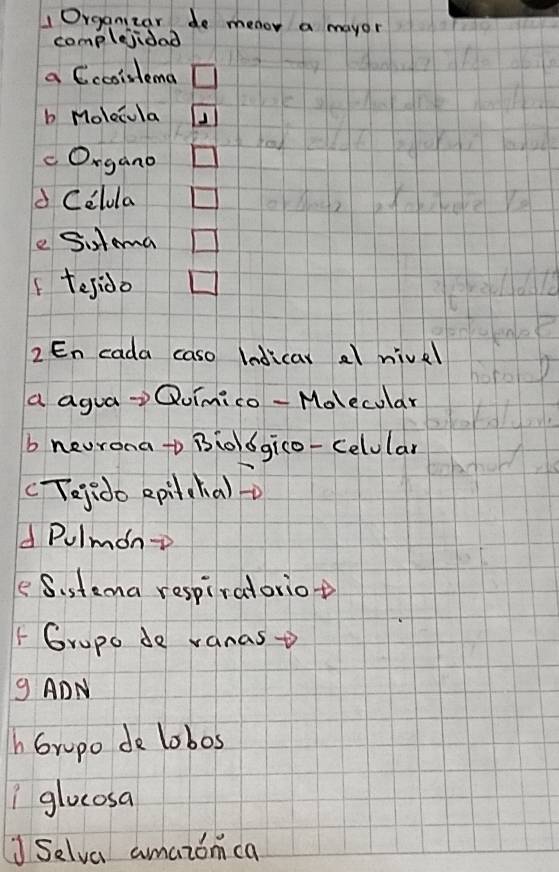 1 Organizar de menor a mayor
complejidad
a Eccoistema □
b Molécula 1
c Organo □
d Célula □
e Sistema □
f tejido □
2 En cada caso Indicar el nivel
a agua → Químico - Molecular
b neurona → Biológico - celular
c Tejido epitelial →
d Pulmón →
e Sistema respiratorio →
f Grupo de ranas →
g ADN
h Grupo de lobos
i glucosa
j Selva amazónica